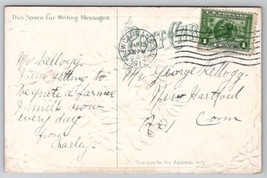 This Space for Writing Messages
Mr Kellogg.
I am getting to
be quite a farmer
I milk now
every day
from
Charley.
Mr. George Kellogg.
New Hartford
Conn
This space for the Address only
1